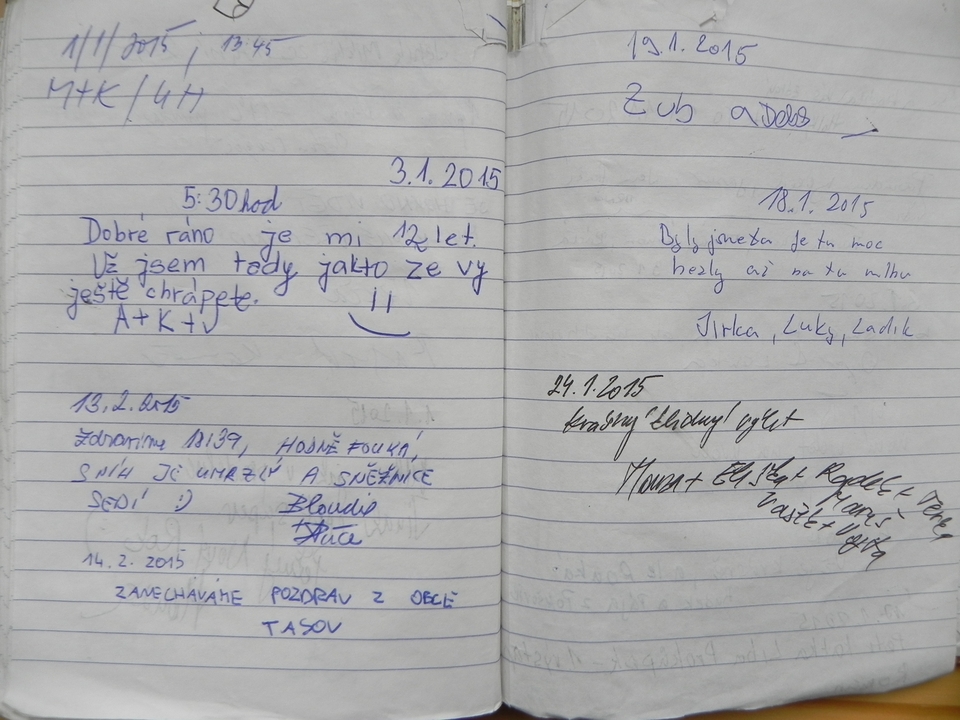 1/1/2015, 13:45
M+K / UH
3.1.2015
5:30hod
Dobré ráno je mi 12 let.
Už jsem tady jakto že vy
ještě chrápete.
A+K+V
13.2.2015
Zdravíme 18:39, HODNĚ FOUKÁ,
SNÍH JE UMRZLÝ A SNĚŽNICE
SEDÍ :)
14.2.2015
ZANECHÁVÁME POZDRAV Z OBCE
TASOV
19.1.2015
Zub a DOBS
18.1.2015
Byly jsme tu je tu moc
hezky až na tu mlhu
Jirka, Luky, Ladik
24.1.2015
krásný výlet
+ Eliška + Radek +